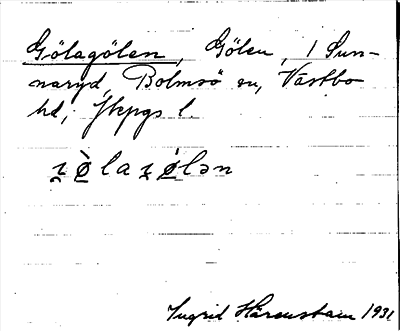 Gölagölen, Gölen, 1 Sun-
naryd, Bolmsö sn, Västbo
hd, Jkpgs l.
ʒø̀laʒø̀lən
Ingrid Härenstam 1931